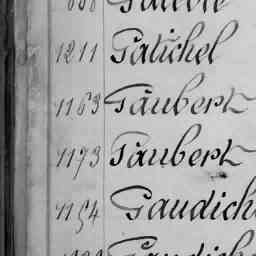 1211 Gatichel
1163 Gaubert
1173 Gaubert
1154 Gaudich